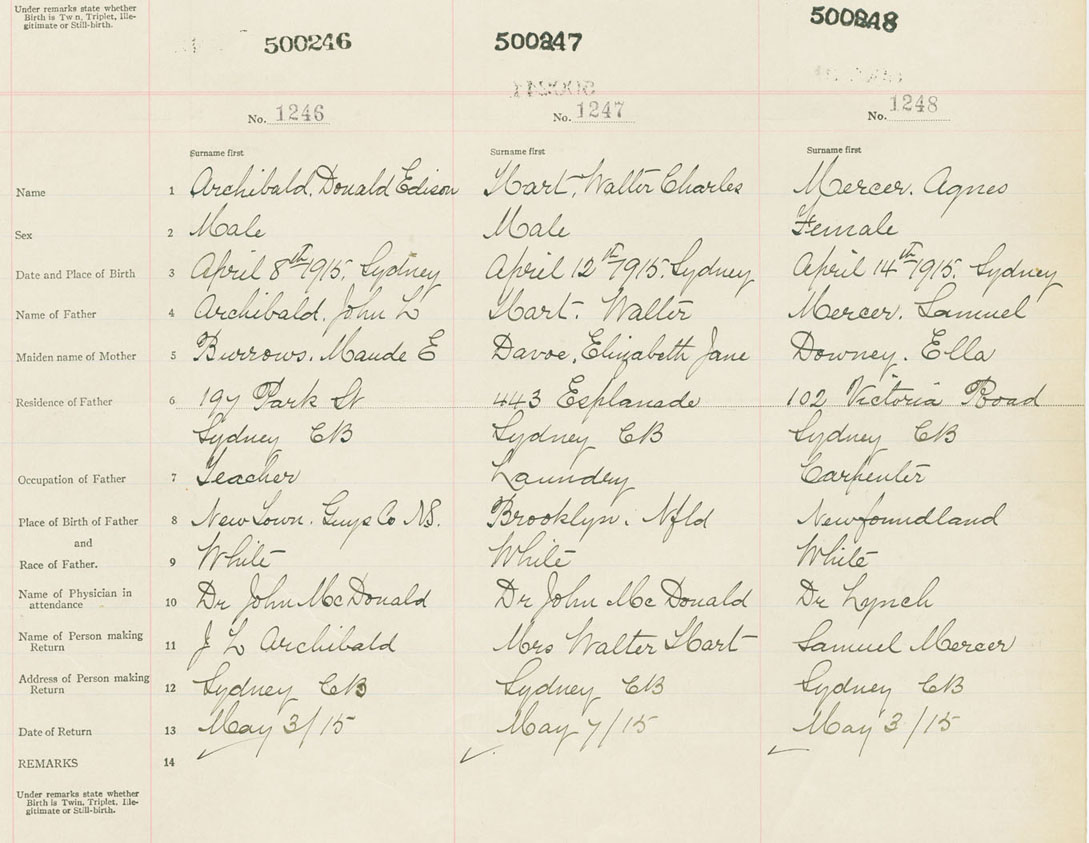 Under remarks state whether
Birth is Twin, Triplet, Ille-
gitimate or Still-birth.
500246 500247 500248
No. 1246 No. 1247 No. 1248
Surname first Surname first Surname first
Name 1 Archibald, Donald Edison Hart, Walter Charles Mercer. Agnes
Sex 2 Male Male Female
Date and Place of Birth 3 April 8th 1915. Sydney April 12th 1915. Sydney April 14th 1915. Sydney
Name of Father 4 Archibald, John L Hart. Walter Mercer. Samuel
Maiden name of Mother 5 Burrows. Maude E Davoe, Elizabeth Jane Downey. Ella
Residence of Father 6 197 Park St 443 Esplanade 102 Victoria Road
Sydney CB Sydney CB Sydney CB
Occupation of Father 7 Teacher Laundry Carpenter
Place of Birth of Father 8 New Town. Guys Co NS. Brooklyn. Nfld Newfoundland
and
Race of Father. 9 White White White
Name of Physician in
attendance 10 Dr John McDonald Dr John McDonald Dr Lynch
Name of Person making
Return 11 J L Archibald Mrs Walter Hart Samuel Mercer
Address of Person making
Return 12 Sydney CB Sydney CB Sydney CB
Date of Return 13 May 3/15 May 7/15 May 3/15
REMARKS 14
Under remarks state whether
Birth is Twin, Triplet, Ille-
gitimate or Still-birth.